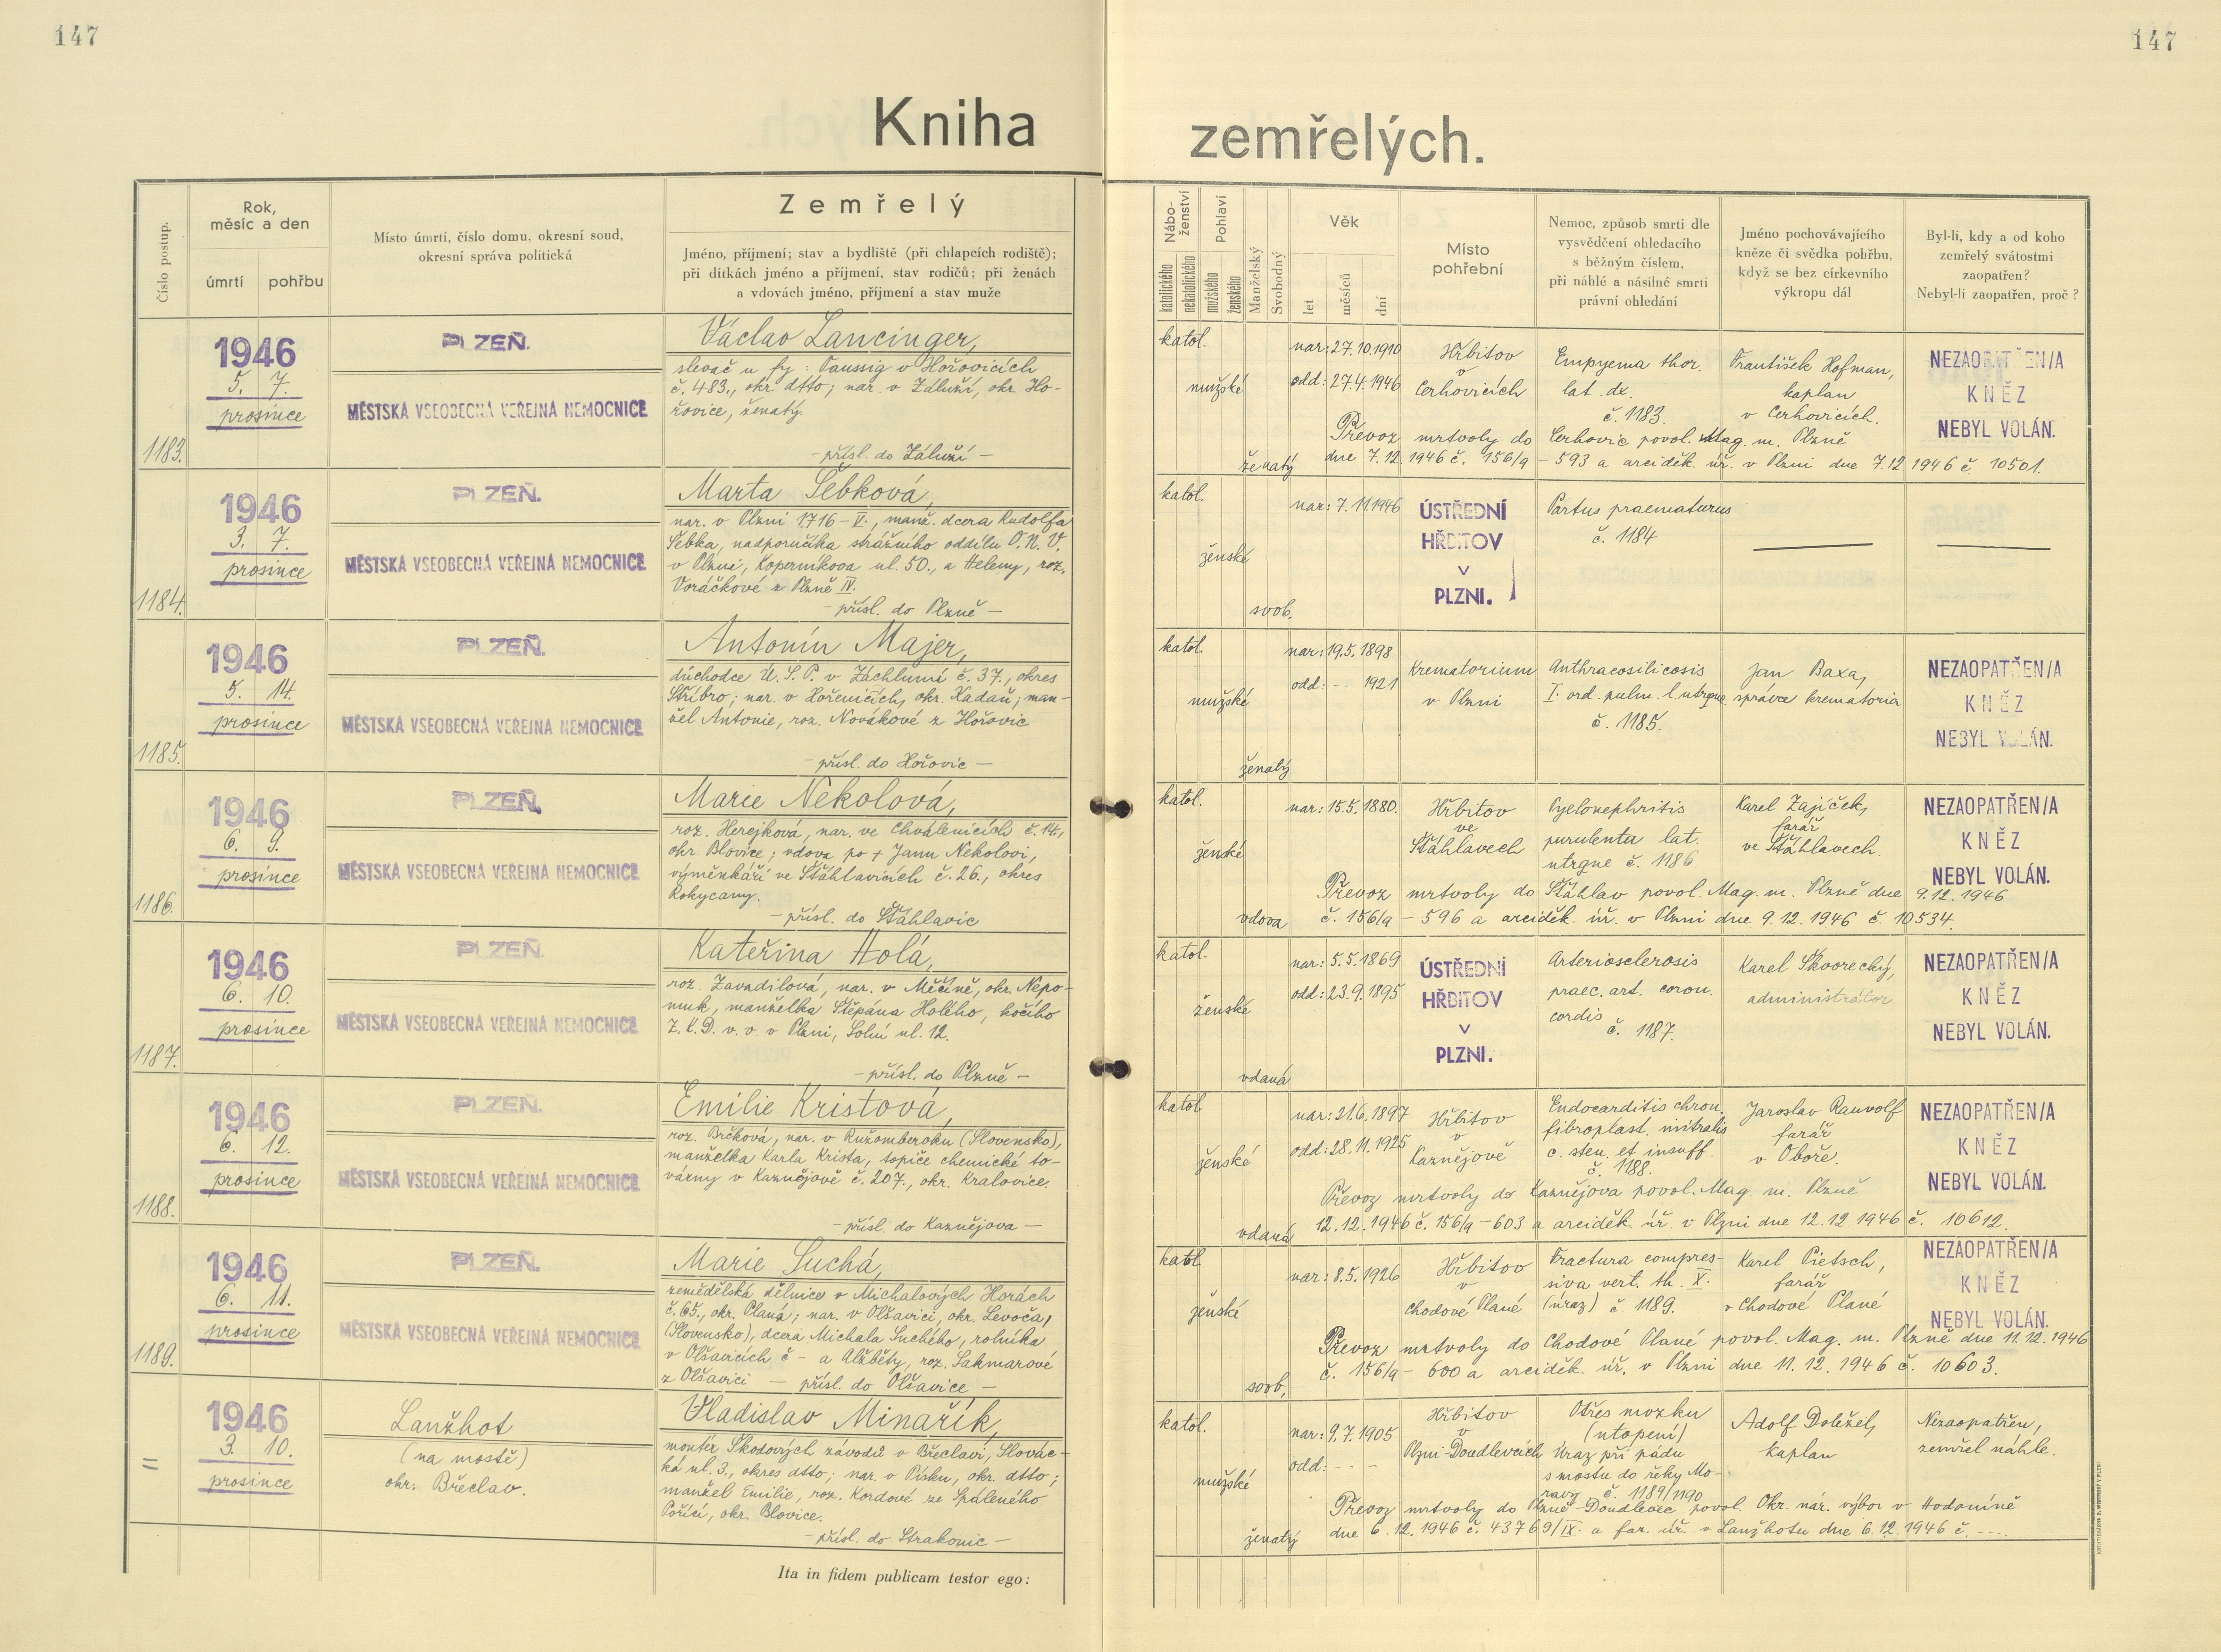 147
147
Kniha
zemřelých.
Číslo postup.
Rok,
měsíc a den
úmrtí
pohřbu
Místo úmrtí, číslo domu, okresní soud,
okresní správa politická
Zemřelý
Jméno, příjmení; stav a bydliště (při chlapcích rodiště);
při dítkách jméno a příjmení, stav rodičů; při ženách
a vdovách jméno, příjmení a stav muže
Nábo-
ženství
katolického
nekatolického
Pohlaví
mužského
ženského
Manželský
Svobodný
Věk
let
měsíců
dní
Místo
pohřební
Nemoc, způsob smrti dle
vysvědčení ohledacího
s běžným číslem,
při náhlé a násilné smrti
právní ohledání
Jméno pochovávajícího
kněze či svědka pohřbu,
když se bez církevního
výkropu dál
Byl-li, kdy a od koho
zemřelý svátostmi
zaopatřen?
Nebyl-li zaopatřen, proč?
1183.
1946
5. 7.
prosince
PLZEŇ.
MĚSTSKÁ VŠEOBECNÁ VEŘEJNÁ NEMOCNICE
Václav Lancinger,
slevač u fy: Taussig v Hořovicích
č. 483., okr. dtto; nar. v Záluží, okr. Ho-
řovice, ženatý.
- přísl. do Záluží -
katol.
mužské
ženatý
nar: 27.10.1910
odd: 27.4.1946
Hřbitov
v
Cerhovicích
Empyema thor.
lat. dx.
č. 1183.
František Hofman,
kaplan
v Cerhovicích.
NEZAOPATŘEN/A
KNĚZ
NEBYL VOLÁN.
Převoz mrtvoly do Cerhovic povol. Mag. m. Plzně
dne 7.12.1946 č. 156/9 - 593 a arciděk. úř. v Plzni dne 7.12.1946 č. 10501.
1184.
1946
3. 7.
prosince
PLZEŇ.
MĚSTSKÁ VŠEOBECNÁ VEŘEJNÁ NEMOCNICE
Marta Šebková,
nar. v Plzni 1716 - V., manž. dcera Rudolfa
Šebka, nadporučíka strážního oddílu O.N.V.
v Plzni, Koperníkova ul. 50., a Heleny, roz.
Voráčkové z Plzně IV.
- přísl. do Plzně -
katol.
ženské
svob.
nar: 7.11.1946
ÚSTŘEDNÍ
HŘBITOV
V
PLZNI.
Partus praematurus
č. 1184
1185.
1946
5. 14.
prosince
PLZEŇ.
MĚSTSKÁ VŠEOBECNÁ VEŘEJNÁ NEMOCNICE
Antonín Majer,
důchodce Ú.S.P. v Záchlumí č. 37., okres
Stříbro; nar. v Hořenicích, okr. Kadaň; man-
žel Antonie, roz. Novákové z Hořovic
- přísl. do Hořovic -
katol.
mužské
ženatý
nar: 19.5.1898
odd: - - 1921
Krematorium
v Plzni
Anthracosilicosis
I. ord. pulm. l. utrque
č. 1185.
Jan Baxa,
správce krematoria
NEZAOPATŘEN/A
KNĚZ
NEBYL VOLÁN.
1186.
1946
6. 9.
prosince
PLZEŇ.
MĚSTSKÁ VŠEOBECNÁ VEŘEJNÁ NEMOCNICE
Marie Nekolová,
roz. Herejková, nar. ve Chválenicích č. 14.,
okr. Blovice; vdova po + Janu Nekolovi,
výměnkáři ve Šťáhlavicích č. 26., okres
Rokycany.
- přísl. do Šťáhlavic
katol.
ženské
vdova
nar: 15.5.1880.
Hřbitov
ve
Šťáhlavech
Pyelonephritis
purulenta lat.
utrque č. 1186
Karel Zajíček,
farář
ve Šťáhlavech.
NEZAOPATŘEN/A
KNĚZ
NEBYL VOLÁN.
Převoz mrtvoly do Šťáhlav povol. Mag. m. Plzně dne 9.12.1946
č. 156/9 - 596 a arciděk. úř. v Plzni dne 9.12.1946 č. 10534.
1187.
1946
6. 10.
prosince
PLZEŇ.
MĚSTSKÁ VŠEOBECNÁ VEŘEJNÁ NEMOCNICE
Kateřina Holá,
roz. Zavadilová, nar. v Měčíně, okr. Nepo-
muk, manželka Štěpána Holého, kočího
Z.K.D. v. v. v Plzni, Solní ul. 12.
- přísl. do Plzně -
katol.
ženské
vdaná
nar: 5.5.1869
odd: 23.9.1895
ÚSTŘEDNÍ
HŘBITOV
V
PLZNI.
Arteriosclerosis
praec. art. coron.
cordis
č. 1187.
Karel Škvorecký,
administrátor
NEZAOPATŘEN/A
KNĚZ
NEBYL VOLÁN.
1188.
1946
6. 12.
prosince
PLZEŇ.
MĚSTSKÁ VŠEOBECNÁ VEŘEJNÁ NEMOCNICE
Emilie Kristová,
roz. Brčková, nar. v Ružomberoku (Slovensko),
manželka Karla Krista, topiče chemické to-
várny v Kaznějově č. 207., okr. Kralovice.
- přísl. do Kaznějova -
katol.
ženské
vdaná
nar: 21.6.1897
odd: 28.11.1925
Hřbitov
v
Kaznějově
Endocarditis chron.
fibroplast. mitralis
c. sten. et insuff.
č. 1188.
Jaroslav Rauvolf
farář
v Oboře.
NEZAOPATŘEN/A
KNĚZ
NEBYL VOLÁN.
Převoz mrtvoly do Kaznějova povol. Mag. m. Plzně
12.12.1946 č. 156/9 - 603 a arciděk. úř. v Plzni dne 12.12.1946 č. 10612.
1189.
1946
6. 11.
prosince
PLZEŇ.
MĚSTSKÁ VŠEOBECNÁ VEŘEJNÁ NEMOCNICE
Marie Suchá,
zemědělská dělnice v Michalových Horách
č. 65., okr. Planá; nar. v Olšavici, okr. Levoča,
(Slovensko), dcera Michala Suchého, rolníka
v Olšavicích č - a Alžběty, roz. Sakmarové
z Olšavici - přísl. do Olšavice -
katol.
ženské
svob.
nar: 8.5.1926
Hřbitov
v
Chodové Plané
Fractura compres-
siva vert. th. X.
(úraz) č. 1189.
Karel Pietsch,
farář
v Chodové Plané
NEZAOPATŘEN/A
KNĚZ
NEBYL VOLÁN.
Převoz mrtvoly do Chodové Plané povol. Mag. m. Plzně dne 11.12.1946
č. 156/9 - 600 a arciděk. úř. v Plzni dne 11.12.1946 č. 10603.
=
1946
3. 10.
prosince
Lanžhot
(na mostě)
okr. Břeclav.
Vladislav Minařík,
montér Škodových závodů v Břeclavi, Slovác-
ká ul. 3., okres dtto; nar. v Písku, okr. dtto;
manžel Emilie, roz. Kordové ze Spáleného
Poříčí, okr. Blovice.
- přísl. do Strakonic -
katol.
mužské
ženatý
nar: 9.7.1905
odd: - - -
Hřbitov
v
Plzni-Doudlevcích
Otřes mozku
(utopení)
Úraz při pádu
s mostu do řeky Mo-
ravy č. 1189/1190
Adolf Doležel,
kaplan
Nezaopatřen,
zemřel náhle.
Převoz mrtvoly do Plzně-Doudlevec povol. Okr. nár. výbor v Hodoníně
dne 6.12.1946 č. 43769/IX. a far. úř. v Lanžhotu dne 6.12.1946 č. ----
Ita in fidem publicam testor ego: